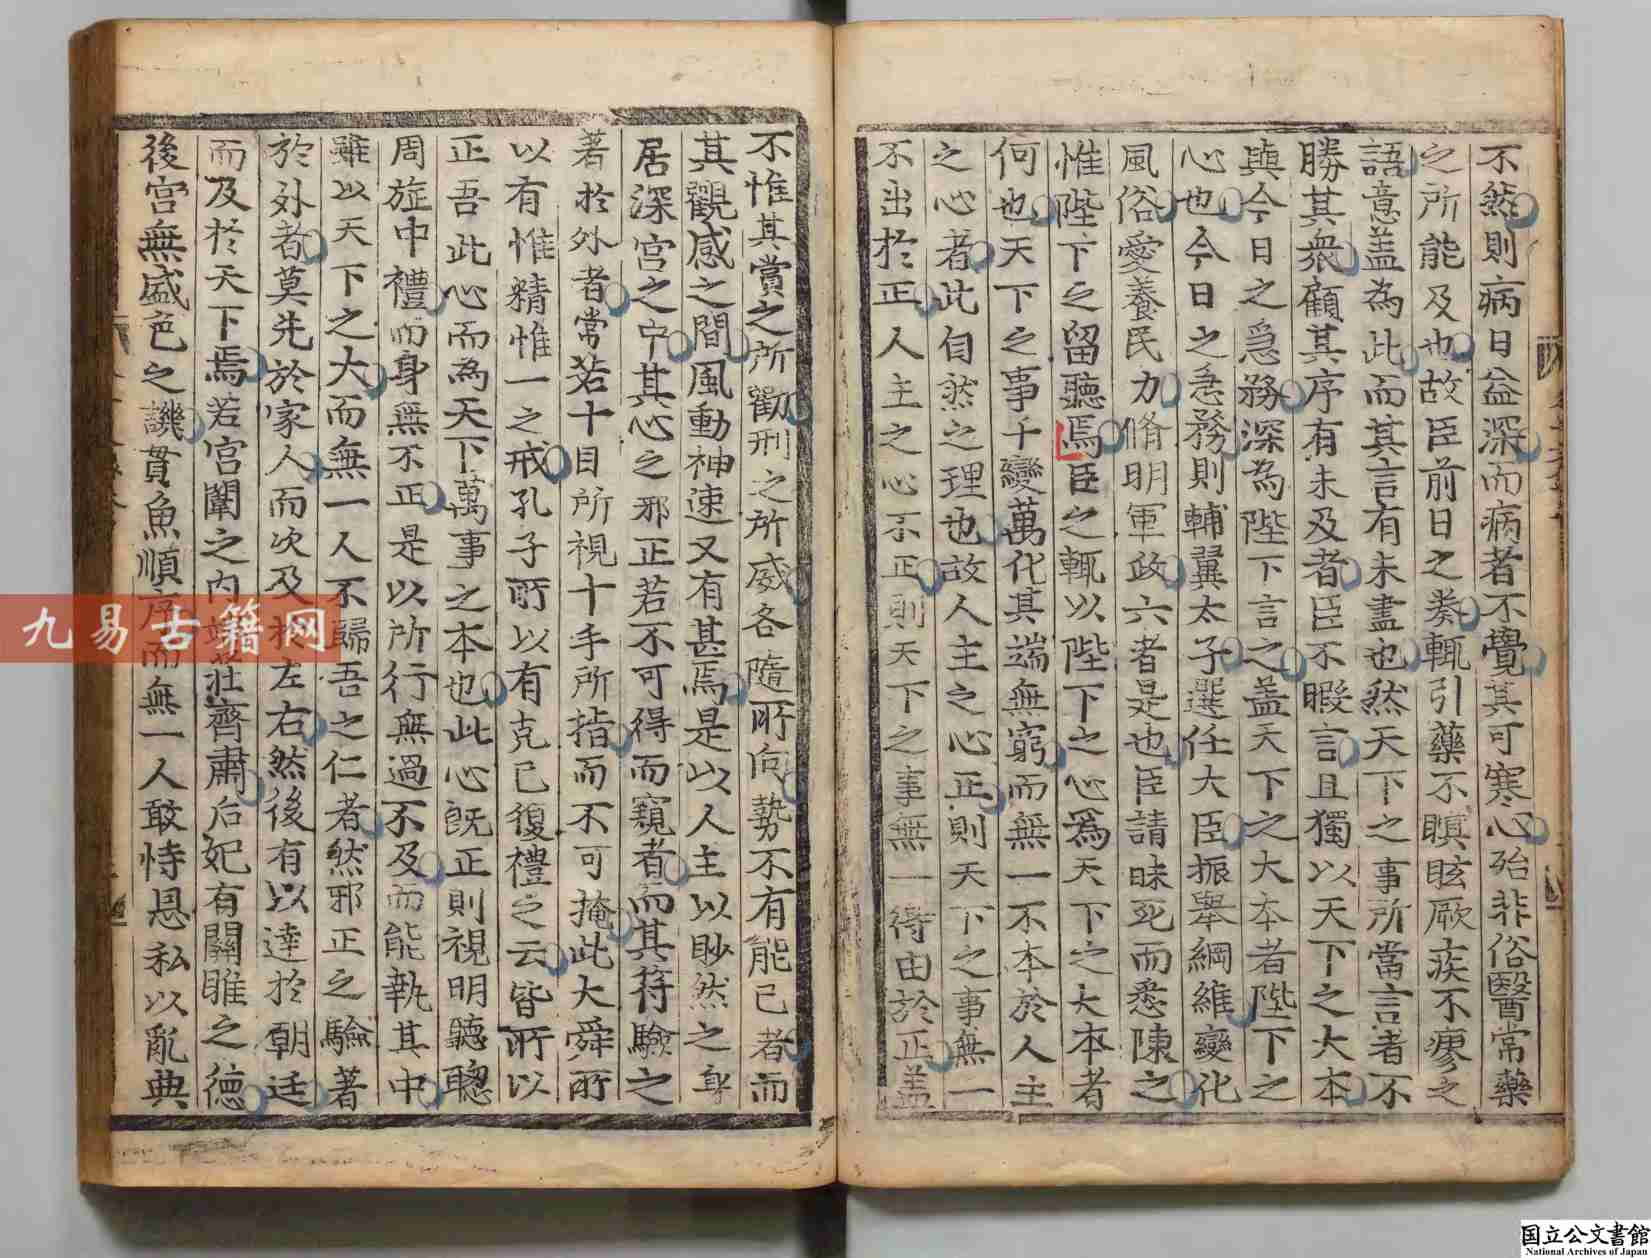 不然則病日益深而病者不覺其可寒心殆非俗醫常藥
之所能及也故臣前日之奏輒引藥不瞑眩厥疾不瘳之
語意盖為此而其言有未盡也然天下之事所當言者不
勝其衆顧其序有未及者臣不暇言且獨以天下之大本
與今日之急務深為陛下言之盖天下之大本者陛下之
心也今日之急務則輔翼太子選任大臣振舉綱維變化
風俗愛養民力脩明軍政六者是也臣請昧死而悉陳之
惟陛下之留聽焉臣之輒以陛下之心為天下之大本者
何也天下之事千變萬代其端無窮而無一不本於人主
之心者此自然之理也故人主之心正則天下之事無一
不出於正人主之心不正則天下之事無一得由於正盖
不惟其賞之所勸刑之所威各隨所向勢不有能已者而
其觀感之間風動神速又有甚焉是以人主以眇然之身
居深宮之中其心之邪正若不可得而窺者而其符驗之
著於外者常若十目所視十手所指而不可掩此大舜所
以有惟精惟一之戒孔子所以有克己復禮之云皆所以
正吾此心而為天下萬事之本也此心既正則視明聽聰
周旋中禮而身無不正是以所行無過不及而能執其中
雖以天下之大而無一人不歸吾之仁者然邪正之驗著
於外者莫先於家人而次及於左右然後有以達於朝廷
而及於天下焉若宮闈之内端莊齊肅后妃有關雎之德
後宮無盛色之譏貫魚順序而無一人敢恃恩私以亂典
九易古籍网
国立公文書館
National Archives of Japan